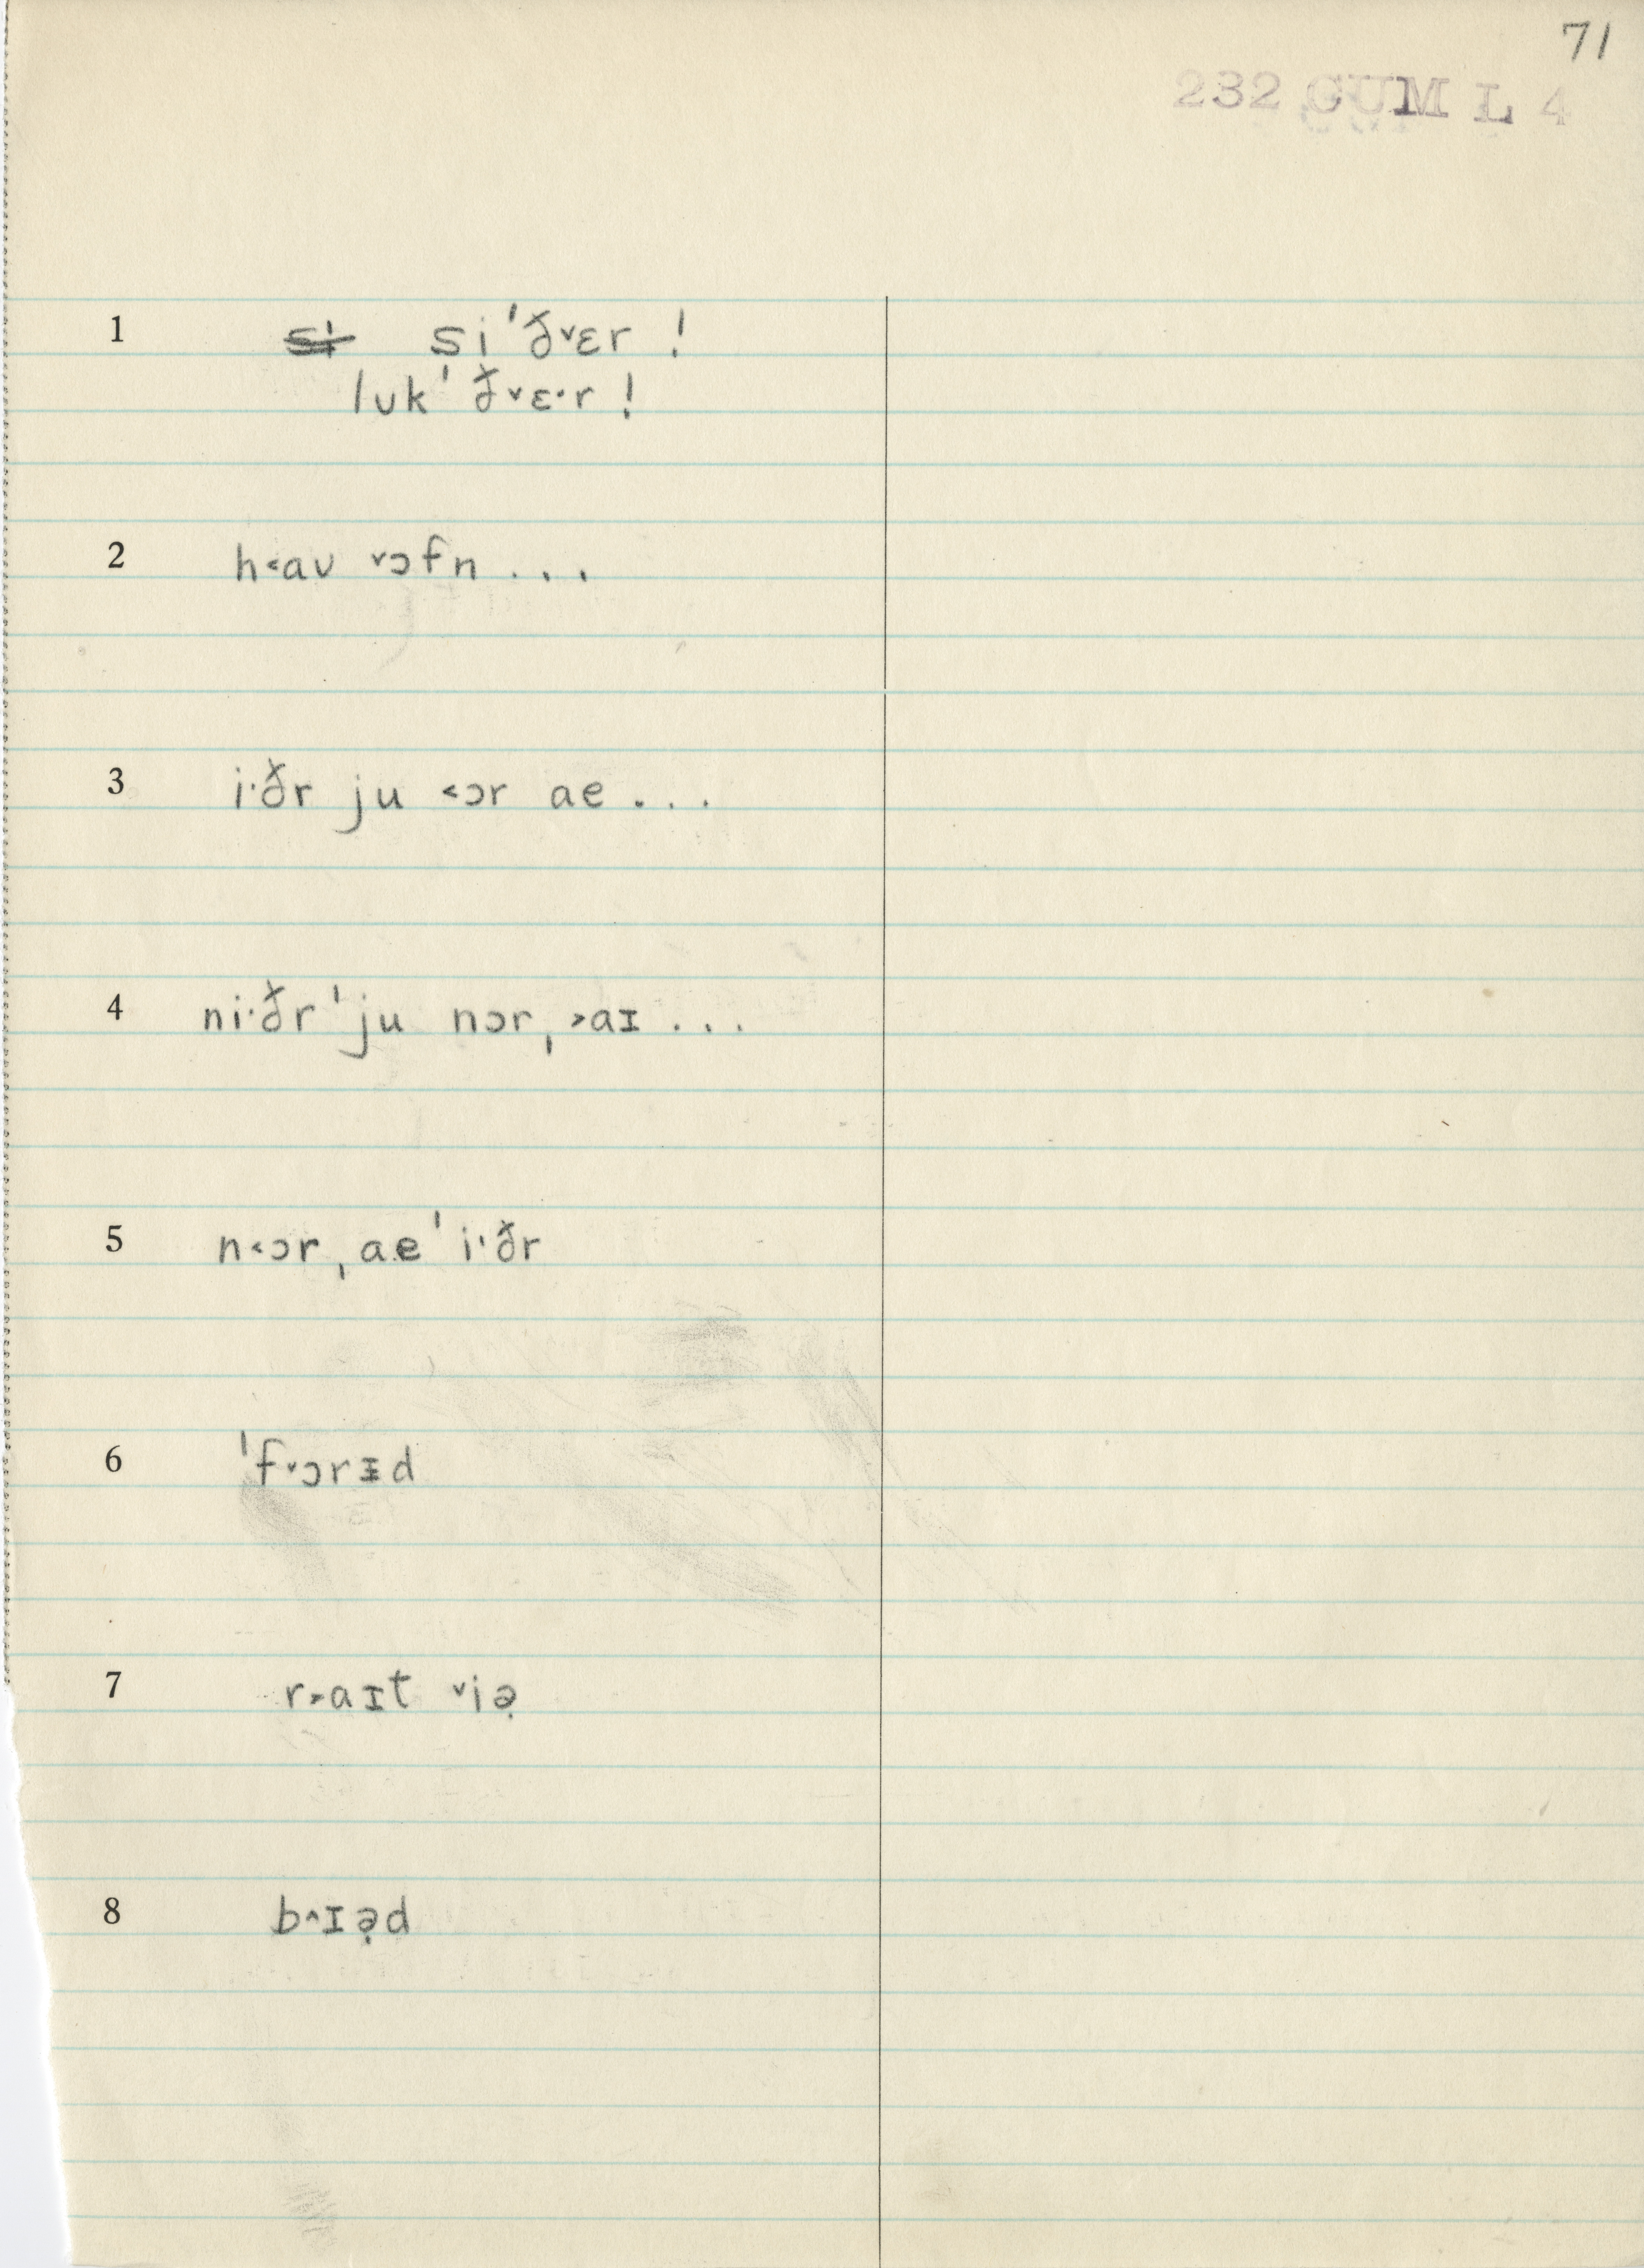 71
232 GUM L 4
1 si si ˈð˅ɛr !
lʊk ˈð˅ɛ·r !
2 h˂aʊ ˅ɔfn . . .
3 i·ðr ju ˂ɔr ae . . .
4 ni·ðr ˈju nɔr ˌ˃aɪ . . .
5 n˂ɔr ˌae ˈi·ðr
6 ˈf˅ɔrᵻd
7 r˃aɪt ˅iə̣
8 b˄ɪə̣d